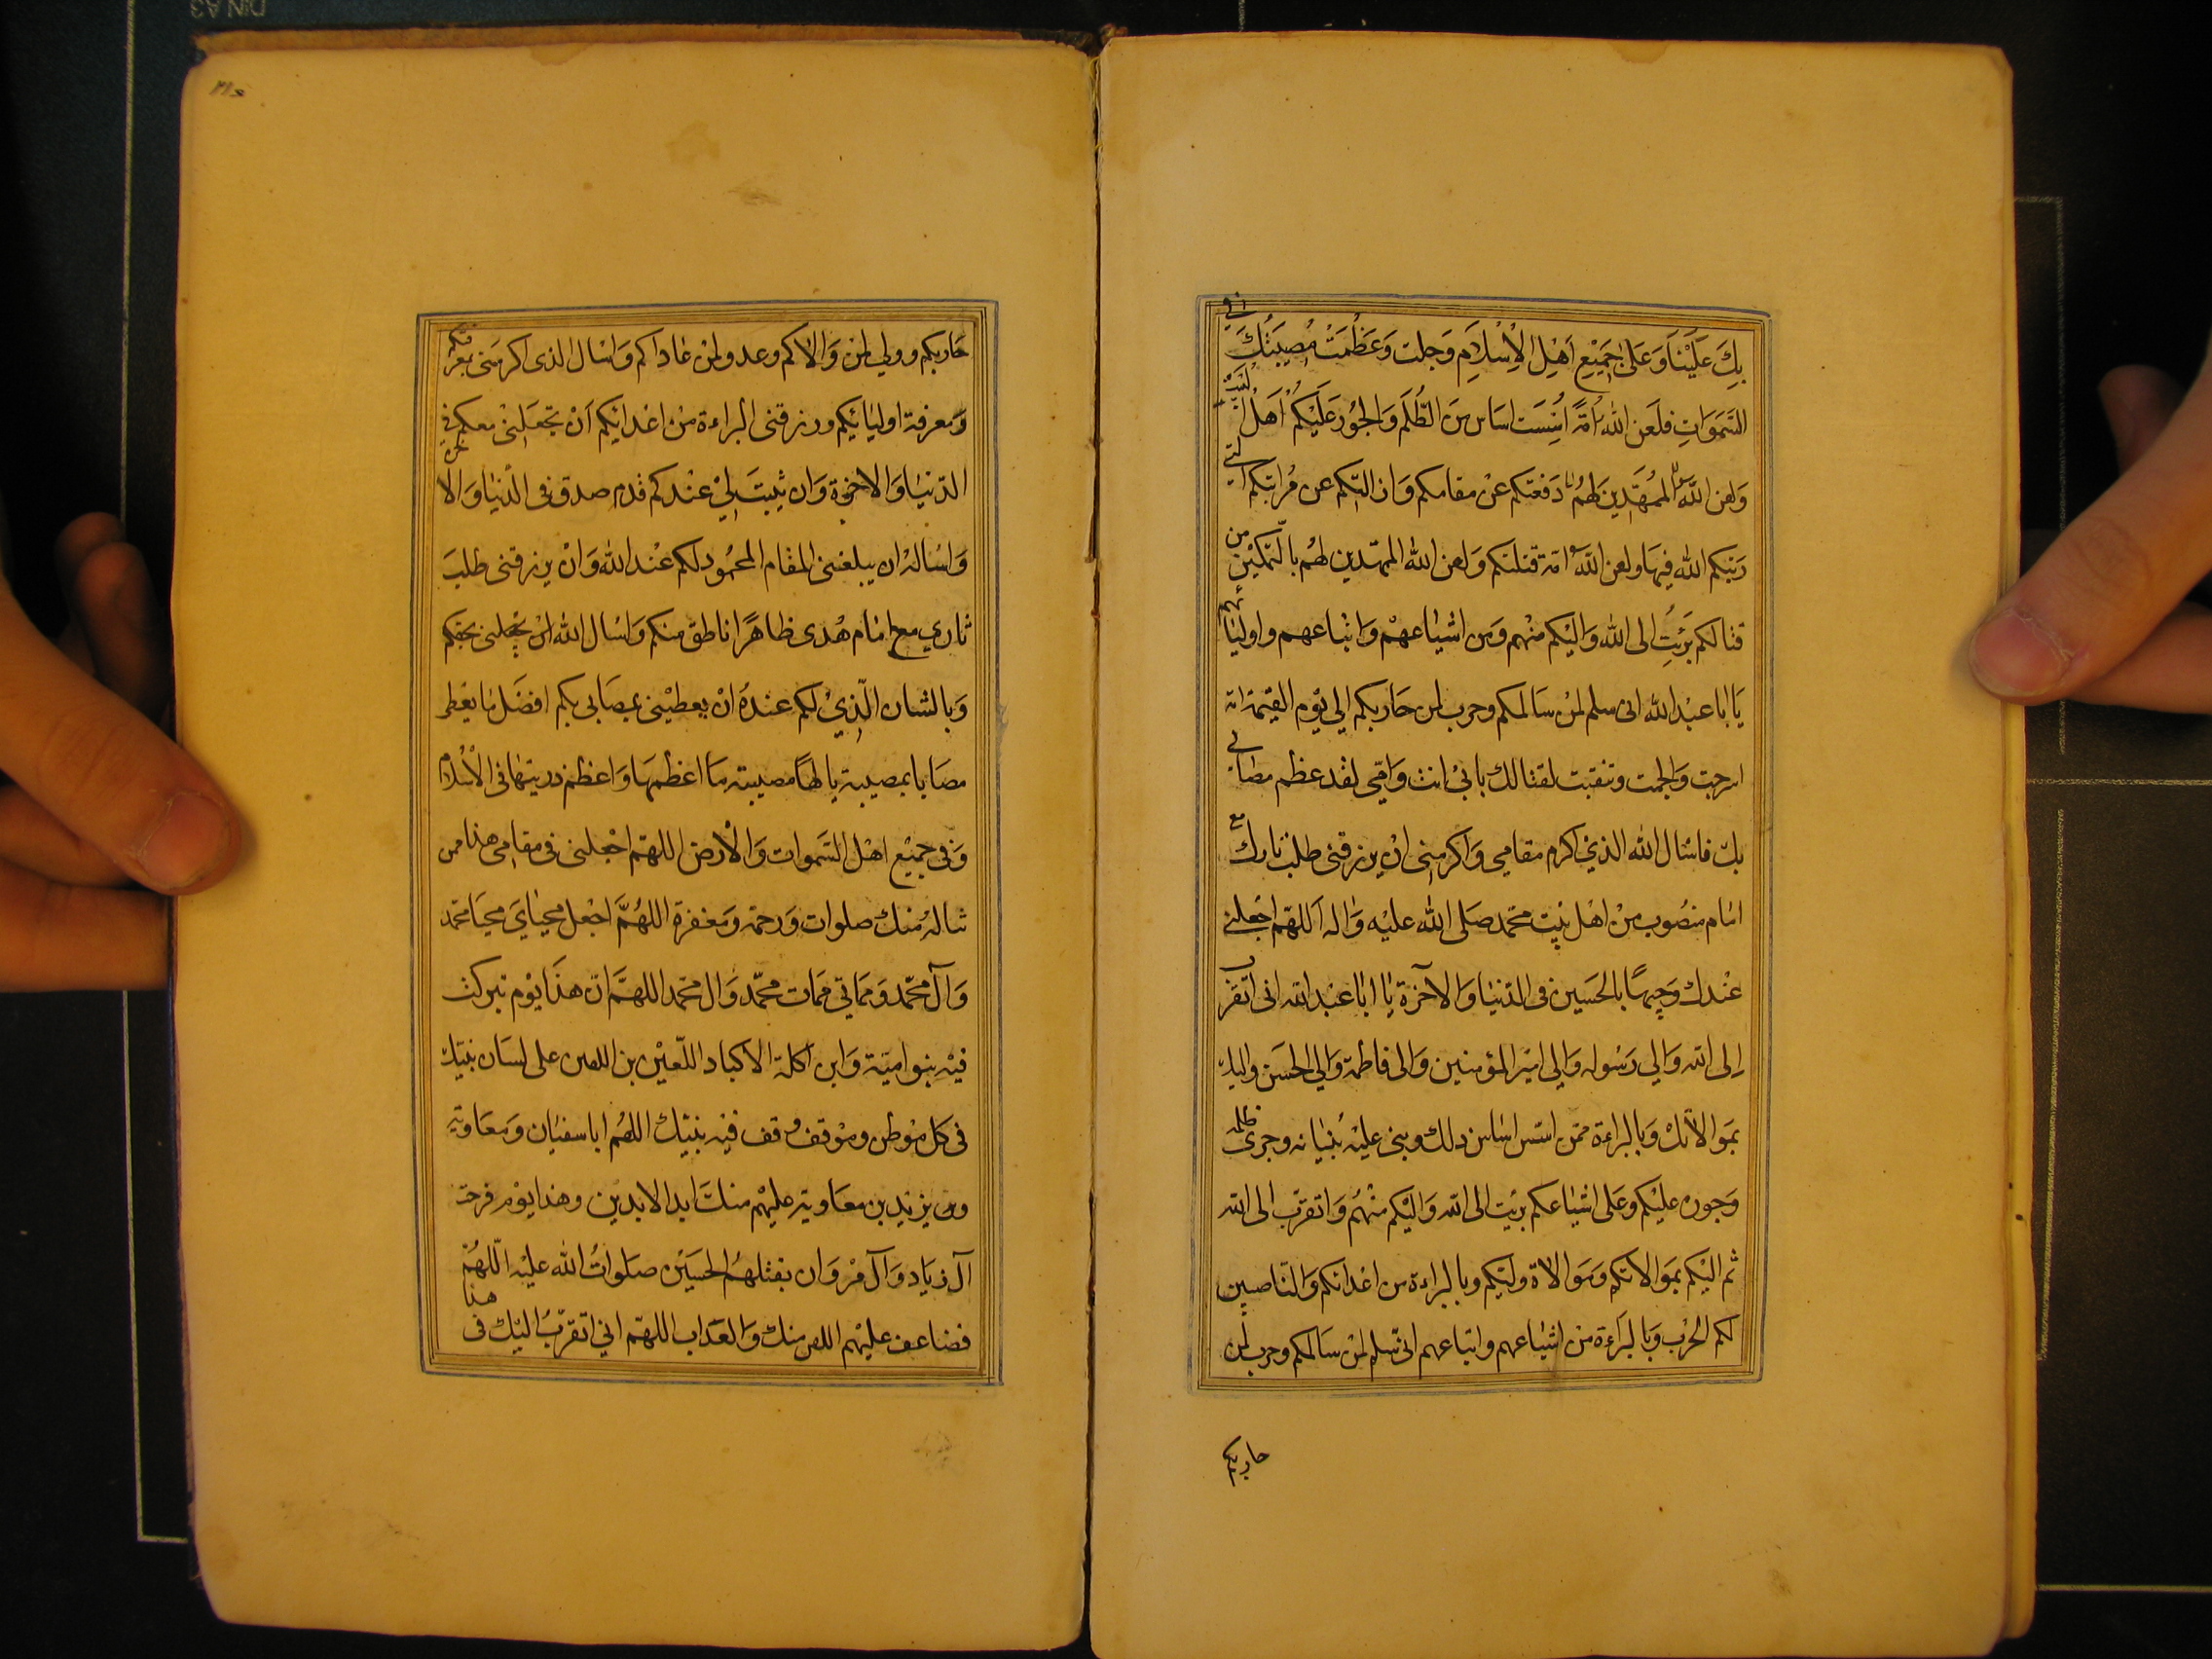 بِكَ عَلَيْنَا وَعَلى جَمِيْعِ اَهْلِ الْاِسْلَامِ وَجلت وَعَظُمَتْ مُصِيبَتُكَ في
السَّمَوَاتِ فلَعَن الله اُمَّةً اَسَّسَت اسَاس الظُّلمَ وَالجُورَ عَلَيْكُمْ اَهْلُ البَيْت
وَلعن اللهُ دَفعَتكم عَنْ مقامكم وَازالتكم عن مُراتبكم التي
رَتبكم الله فيهَا ولعن اللهُ امة قتلتكم وَلعن الله الممهّدين لهُم بالتمكيْن من
قتالكم بَرَئتِ الى الله وَاليْكم منْهم وَمن اشيَاعهمْ وَاتْباعهم واوليَائهم
يَا ابَا عبْد الله انى سلم لمنْ سَالمكم وحرب لمن حَاربكم الي يَوْم القيٰمة امة
اسرجت وَالجمت وتنقبت لقتالك بابيْ انت وَامّي لقد عظم مصَابي
بك فاسْال الله الذيْ اكرم مقامي وَاكرمنى انْ يرزقنى طلب ثارك مع
امَام منصُوب منْ اهْل بيت محمّد صَلى الله عليْه وَاله اَللهّم اجْعلنى
عنْدك وَجيهًا بالحسَين فى الدنيَا وَالآخرة يَا ابَا عبْد الله انى اتقرب
اِلى الله وَالي رَسُوله وَالي اميْر المؤمنين وَالى فاطمة وَالي الحسَن واليك
بمَوالاتكْ وَبالبراءة ممّن اسّس اسَاس ذلك وبنى عليْه بُنيَانه وجرى ظلمه
وَجوره عليْكم وعَلى اشيَاعكم برئت الى الله وَاليْكم منْهُم وَاتقرّب الى الله
ثم اليْكم بمَوالاتكم وَمَوالاة وليّكم وبالبراءة من اعْدائكم وَالنّاصبين
لكم الحْرب وَبالبَراءة من اشيَاعهم واتباعهم انى سلم لمنْ سَالمكم وحرب لمن
حاربكم
حَاربكم وولي لمن وَالاكم وعدو لمنْ عَاداكم وَاسْال الذى اكرمَنى بمعرفتكم
وَمعرفة اوليَائكم ورزقنى البراءة منْ اعْدائكم اَنْ يجْعَلنىْ معكم في
الدنيَا وَالاخرة وَان يثبتَ ليْ عنْدكم قدم صدق فى الدّنيَا وَالاخرة
وَاسْالهُ ان يبلغنى المقام المحمُود لكم عنْد الله وَانْ يرزقنى طلبَ
ثاري مع امَام هُدى ظاهرًا ناطق منكم وَاسْال الله بحقكم
وَبالشان الّذيْ لكم عندهُ انْ يعطيْنى بمصَابى بكم افضَل مَا يعْطى
مصَابا بمصيبته يا لهَا مصيبة مَا اعْظمهَا وَاعْظم رزيتهَا فى الاسْلام
وَفى جميْع اهْل السَّموات وَالاَرض اللهمّ اجْعلنى فى مقامي هذا ممن
تنالهُ منك صلوات وَرحمة وَمغفرة اللهُمَّ اجْعل محيَايَ محيَا محمّد
وَآل محمّد وَمماتي ممَات محمّد وَال محمّد اللهمَّ انّ هذَا يَوْم تبركت
فيْه بنو اميّة وَابن اكلة الاكباد اللّعيْن بن اللعين على لسَان نبيّك
فى كل موْطن وموْقف وقف فيْه نبيّك اللهُم ابا سفيَان وَمعَاوية
ومن يزيد بن معَاوية عليْهم منك ابد الابديْن وهذا يوْم فرحت
آل زيَاد وَآل مرْوَان بقتلهمُ الحسَيْن صلوَاتُ الله عليْه اللّهُمّ
فضاعف عليْهم اللعن منك وَالعذاب اللهمّ اني اتقرّبُ اليْك فى هذا